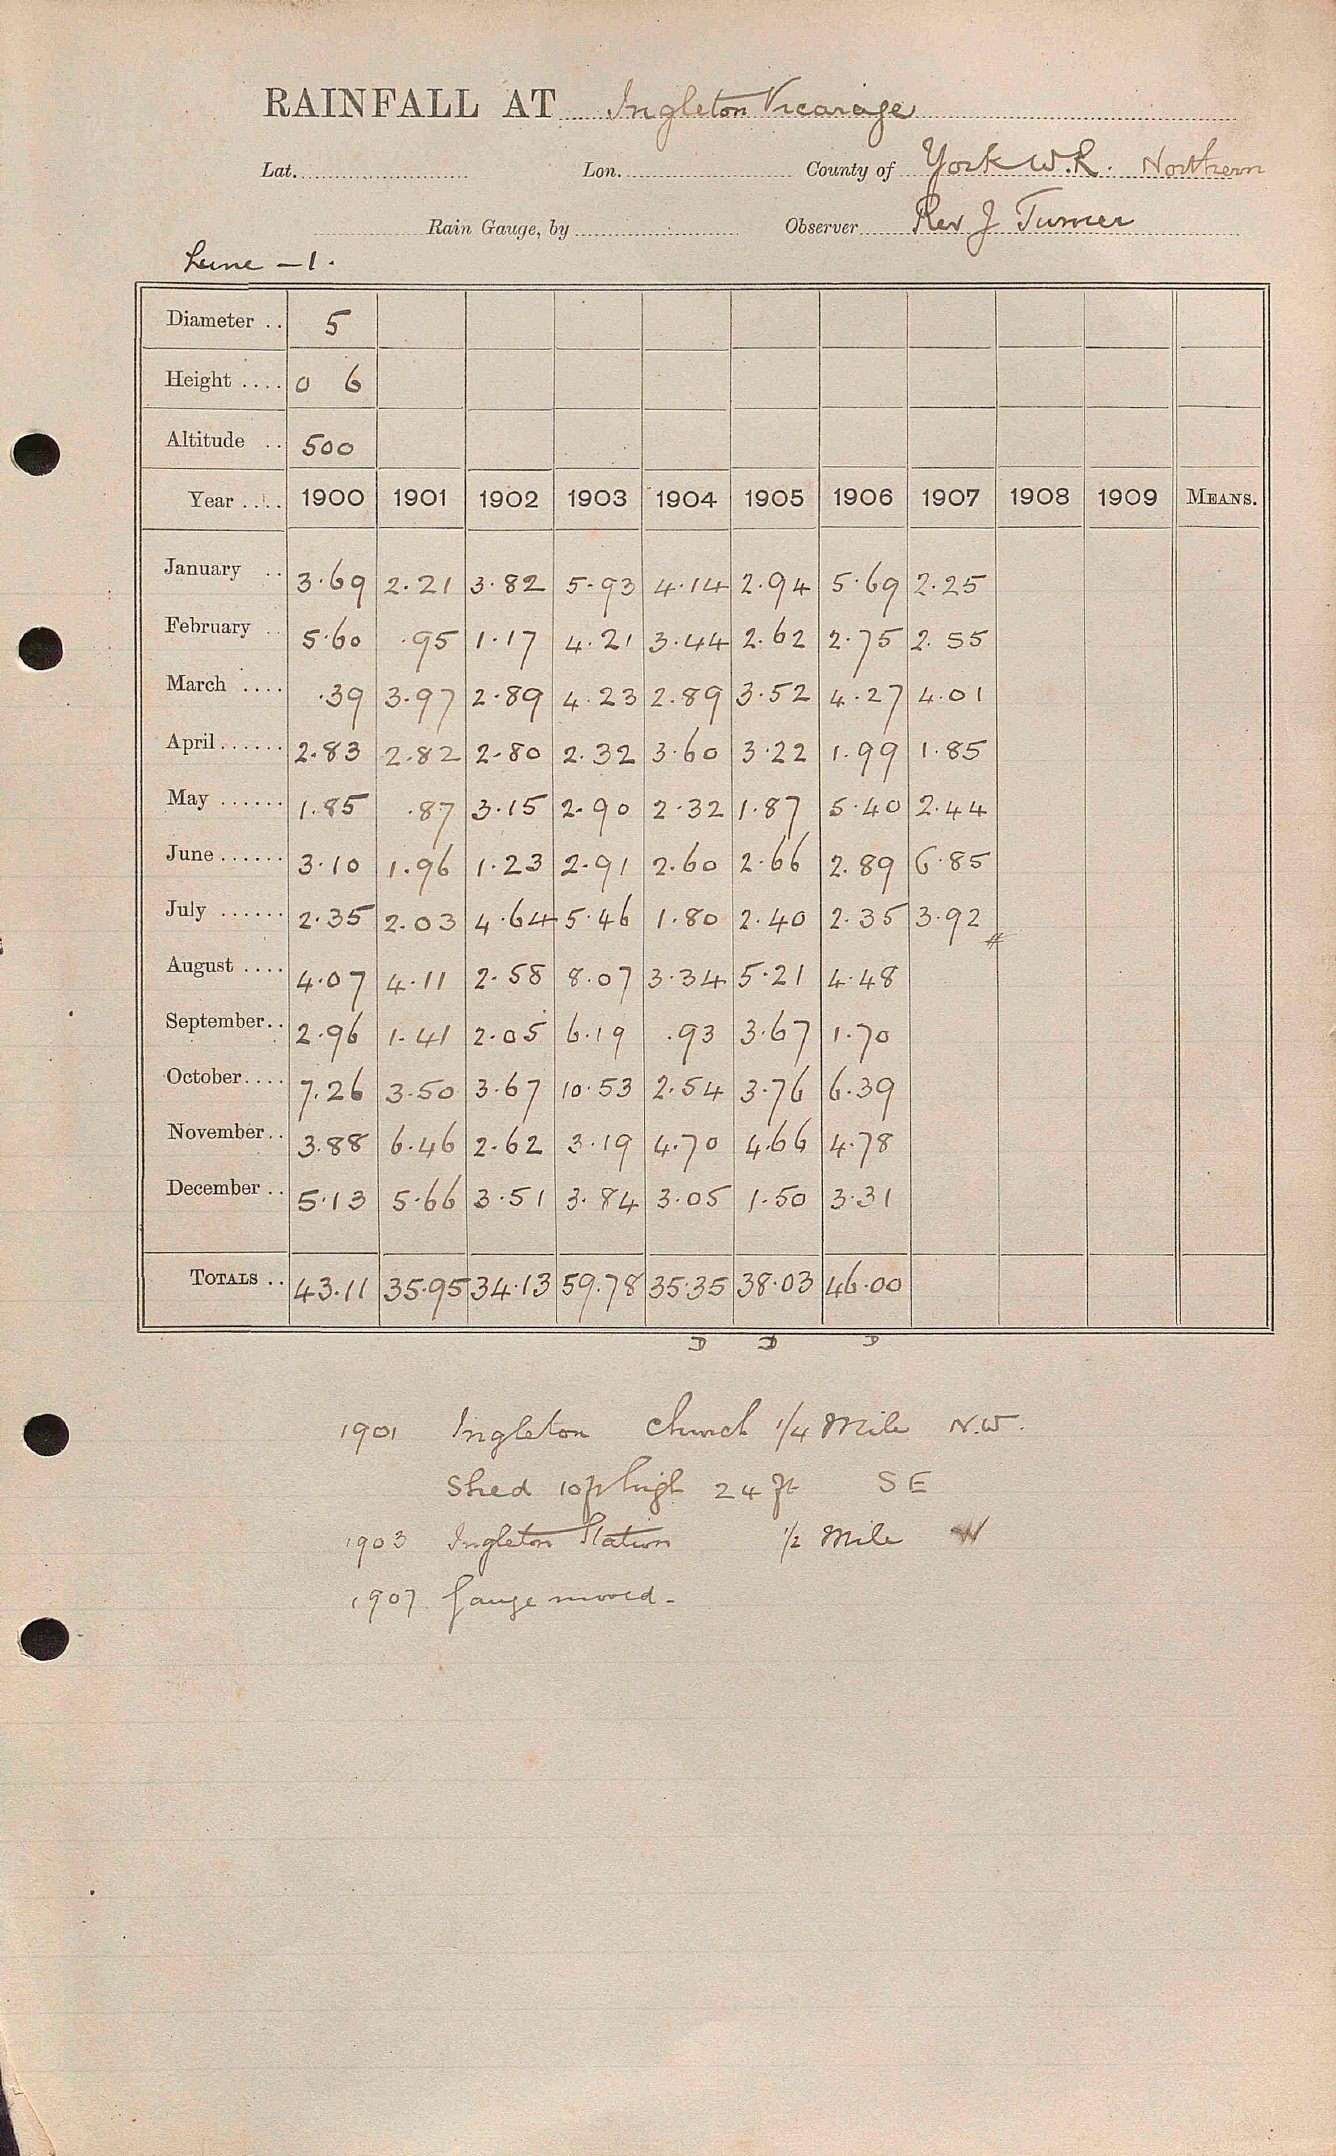 RAINFALL AT Ingleton Vicarage
Lat. Lon. County of York W.R. Northern
Rain Gauge, by Observer Rev J Turner
Lune - 1.
Diameter .. 5
Height .... 0 6
Altitude .. 500
Year .... 1900 1901 1902 1903 1904 1905 1906 1907 1908 1909 MEANS.
January .. 3.69 2.21 3.82 5.93 4.14 2.94 5.69 2.25
February .. 5.60 .95 1.17 4.21 3.44 2.62 2.75 2.55
March .... .39 3.97 2.89 4.23 2.89 3.52 4.27 4.01
April ...... 2.83 2.82 2.80 2.32 3.60 3.22 1.99 1.85
May ...... 1.85 .87 3.15 2.90 2.32 1.87 5.40 2.44
June ...... 3.10 1.96 1.23 2.91 2.60 2.66 2.89 6.85
July ...... 2.35 2.03 4.64 5.46 1.80 2.40 2.35 3.92
August .... 4.07 4.11 2.58 8.07 3.34 5.21 4.48
September.. 2.96 1.41 2.05 6.19 .93 3.67 1.70
October.... 7.26 3.50 3.67 10.53 2.54 3.76 6.39
November.. 3.88 6.46 2.62 3.19 4.70 4.66 4.78
December .. 5.13 5.66 3.51 3.84 3.05 1.50 3.31
TOTALS .. 43.11 35.95 34.13 59.78 35.35 38.03 46.00
D D D
1901 Ingleton Church 1/4 Mile N.W.
Shed 10ft high 24 ft SE
1903 Ingleton Station 1/2 Mile W
1907 Gauge moved.